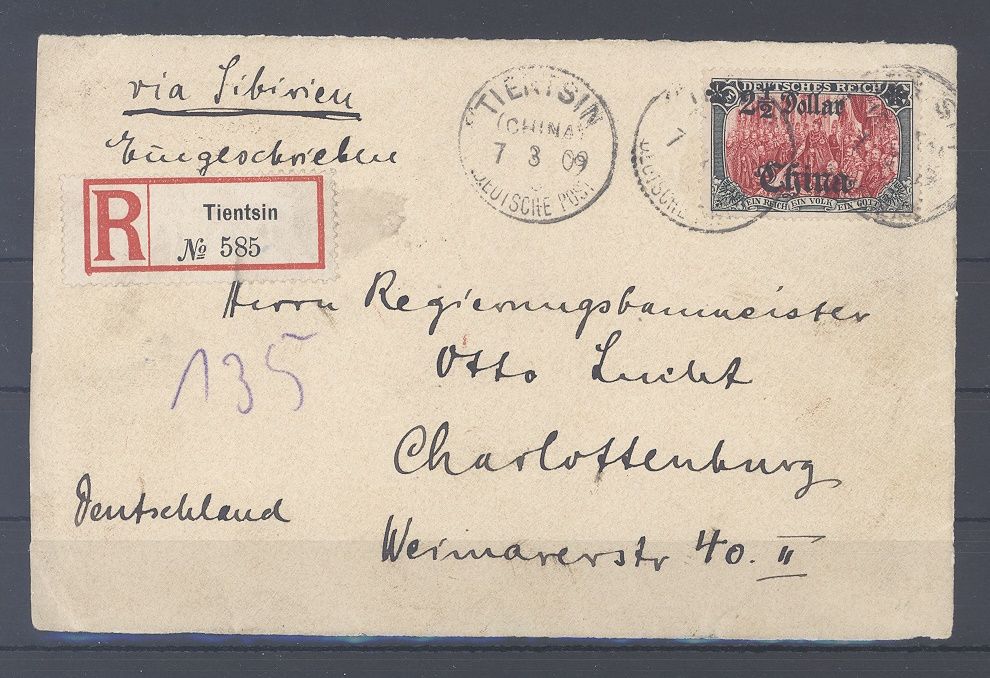 via Sibirien
Eingeschrieben
R Tientsin
№ 585
TIENTSIN
(CHINA)
7 3 09
DEUTSCHE POST
DEUTSCHES REICH
2½ Dollar
China
EIN REICH EIN VOLK EIN GOTT
7
DEUTSCHE
Herrn Regierungsbaumeister
Otto Lucht
135
Charlottenburg
Deutschland
Weimarerstr 40. II